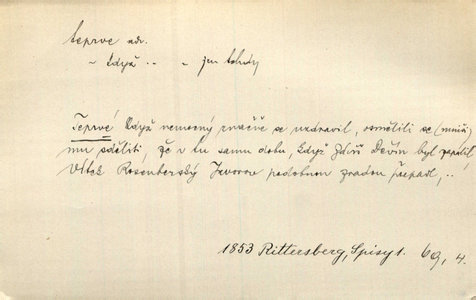 teprve adv.
~ když .. ~ jen tehdy
Teprvé když nemocný značně se uzdravil, osmělili se (mniši)
mu sděliti, že v tu samu dobu, když Zdiš Děvín byl zapálil,
Vítek Rosenberský Javorov podobnou zradou přepadl, ..
1853 Rittersberg, Spisy 1. 69, 4.